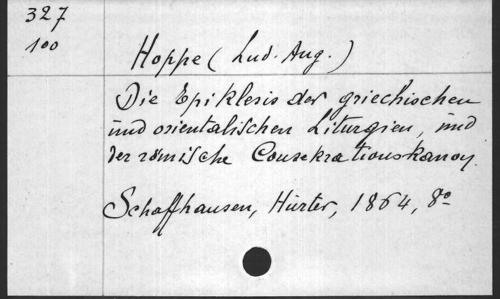 327
100
Hoppe (Lud. Aug.)
Die Epiklesis der griechischen
und orientalischen Liturgien, und
der römische Consekrationskanon.
Schaffhausen, Hurter, 1864, 8º